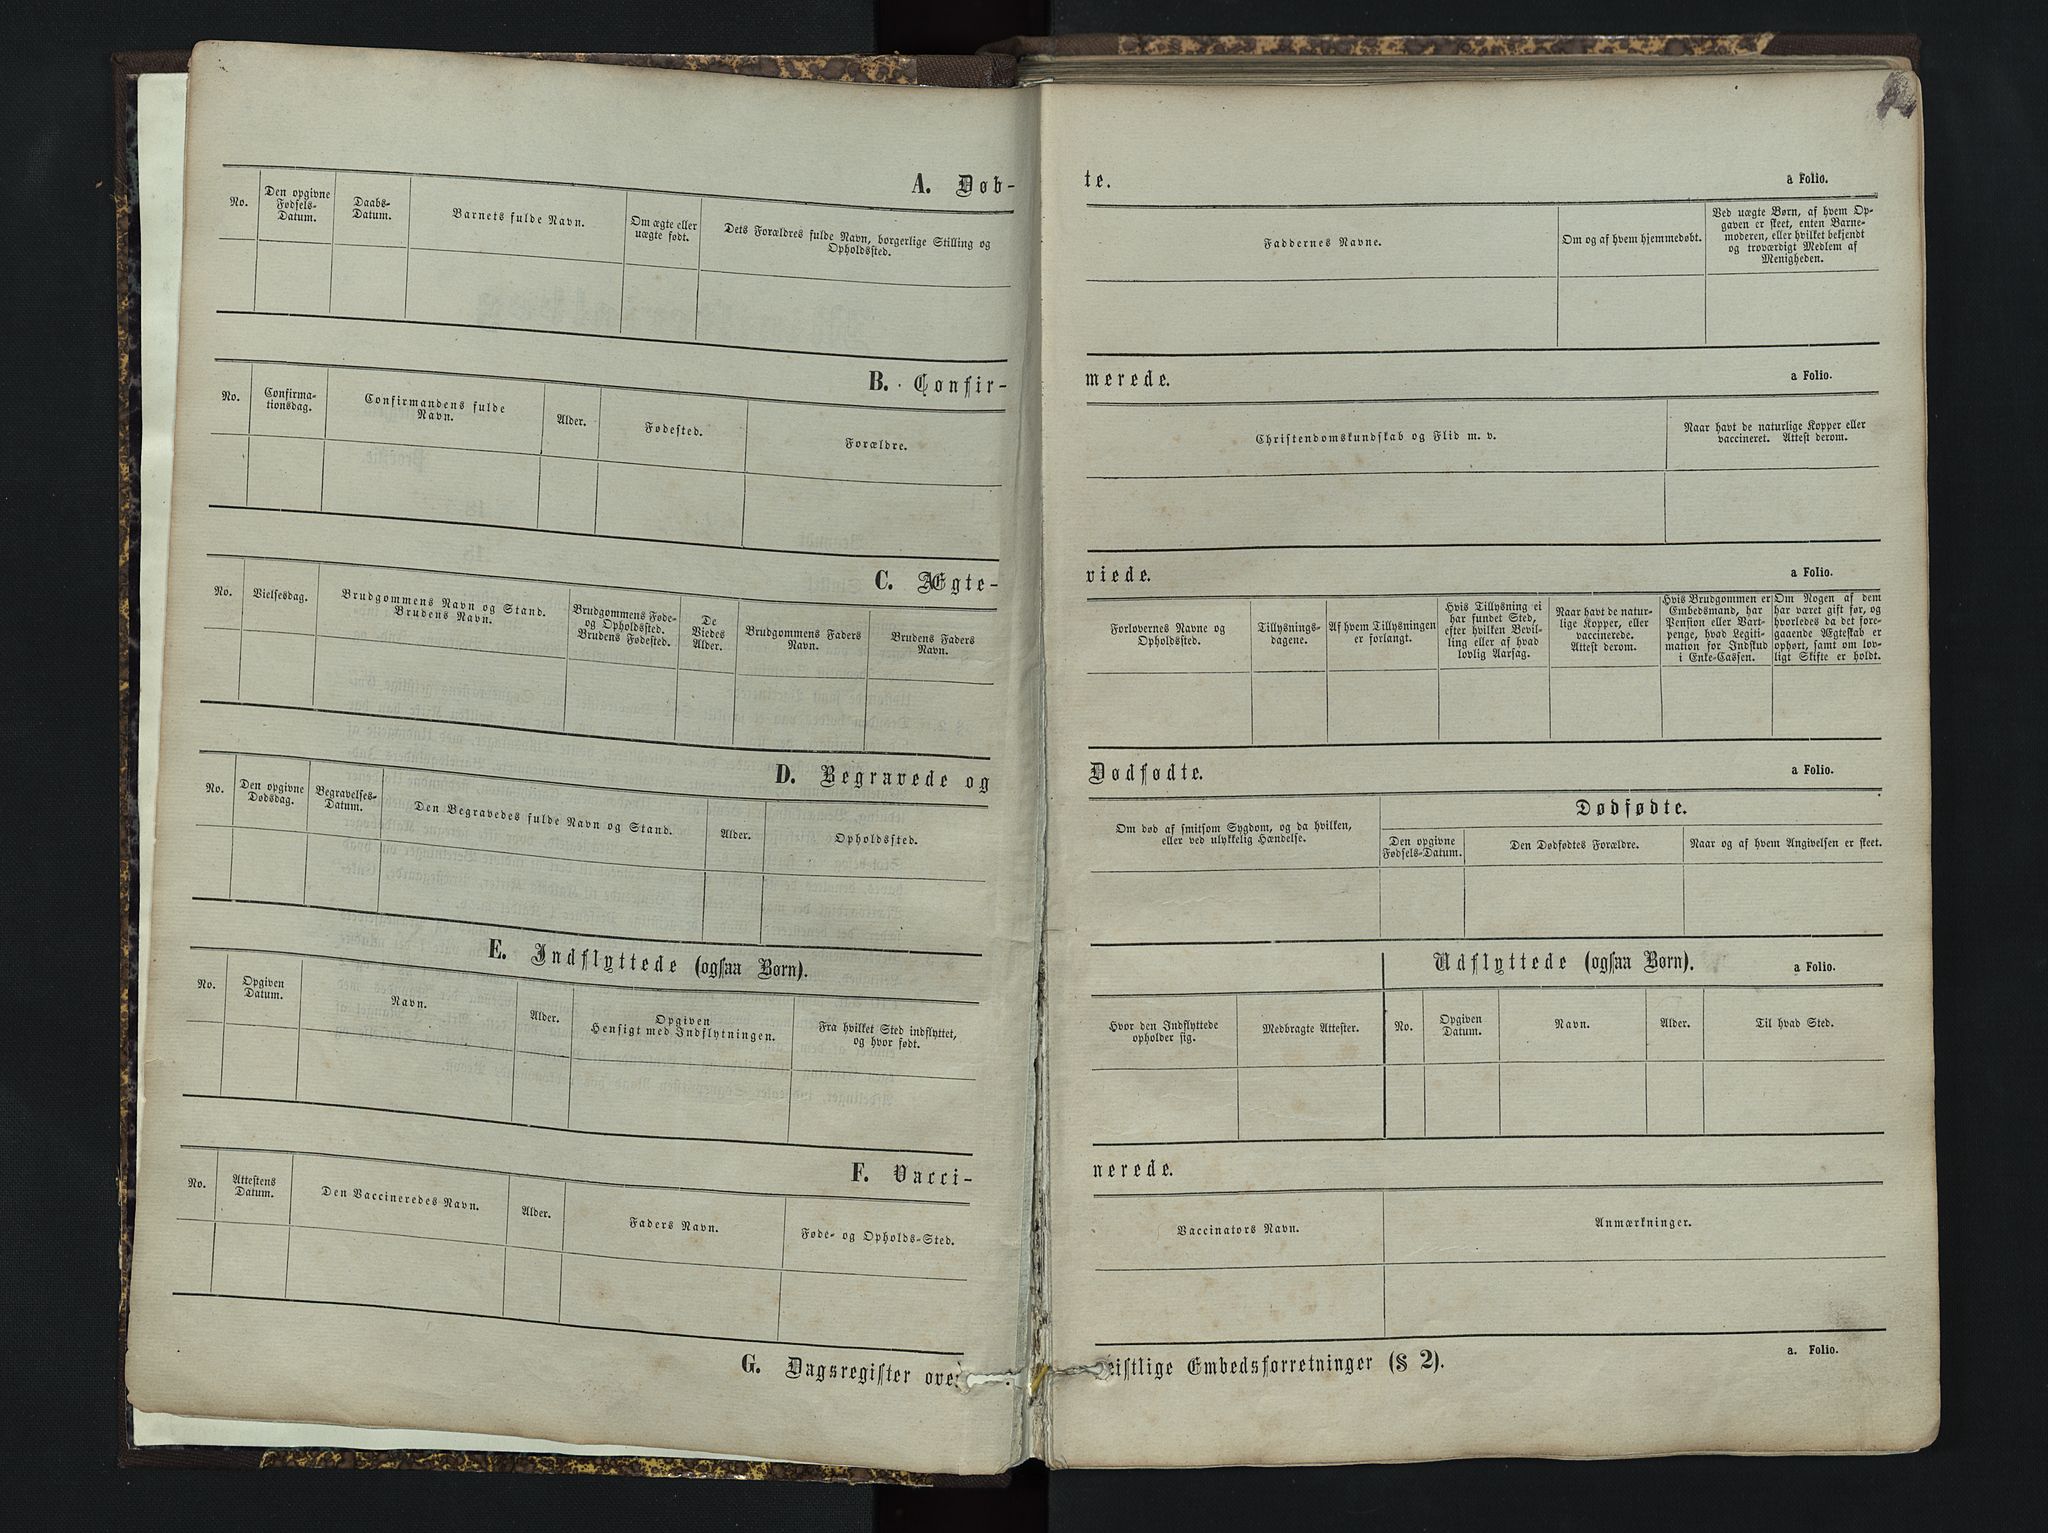 A. Døb-
te.
a Folio.
No.
Den opgivne
Fødsels-
Datum.
Daabs-
Datum.
Barnets fulde Navn.
Om ægte eller
uægte født.
Dets Forældres fulde Navn, borgerlige Stilling og
Opholdssted.
Faddernes Navne.
Om og af hvem hjemmedøbt.
Ved uægte Børn, af hvem Op-
gaven er skeet, enten Barne-
moderen, eller hvilket bekjendt
og troværdigt Medlem af
Menigheden.
B. Confir-
merede.
a Folio.
No.
Confirma-
tionsdag.
Confirmandens fulde
Navn.
Alder.
Fødested.
Forældre.
Christendomskundskab og Flid m. v.
Naar havt de naturlige Kopper eller
vaccineret. Attest derom.
C. Ægte-
viede.
a Folio.
No.
Vielsesdag.
Brudgommens Navn og Stand.
Brudens Navn.
Brudgommens Føde-
og Opholdssted.
Brudens Fødested.
De
Viedes
Alder.
Brudgommens Faders
Navn.
Brudens Faders
Navn.
Forlovernes Navne og
Opholdssted.
Tillysnings-
dagene.
Af hvem Tillysningen
er forlangt.
Hvis Tillysning ei
har fundet Sted,
efter hvilken Bevil-
ling eller af hvad
lovlig Aarsag.
Naar havt de natur-
lige Kopper, eller
vaccinerede.
Attest derom.
Hvis Brudgommen er
Embedsmand, har
Pension eller Vart-
penge, hvad Legiti-
mation for Indskud
i Enke-Cassen.
Om Nogen af dem
har været gift før, og
hvorledes da det fore-
gaaende Ægteskab er
ophørt, samt om lov-
ligt Skifte er holdt.
D. Begravede og
Dødfødte.
a Folio.
No.
Den opgivne
Dødsdag.
Begravelses-
Datum.
Den Begravedes fulde Navn og Stand.
Alder.
Opholdssted.
Om død af smitsom Sygdom, og da hvilken,
eller ved ulykkelig Hændelse.
Dødfødte.
Den opgivne
Fødsels-Datum.
Den Dødfødtes Forældre.
Naar og af hvem Angivelsen er skeet.
E. Indflyttede (ogsaa Børn).
Udflyttede (ogsaa Børn).
a Folio.
No.
Opgiven
Datum.
Navn.
Alder.
Opgiven
Hensigt med Indflytningen.
Fra hvilket Sted indflyttet,
og hvor født.
Hvor den Indflyttede
opholder sig.
Medbragte Attester.
No.
Opgiven
Datum.
Navn.
Alder.
Til hvad Sted.
F. Vacci-
nerede.
No.
Attestens
Datum.
Den Vaccineredes Navn.
Alder.
Faders Navn.
Føde- og Opholds-Sted.
Vaccinators Navn.
Anmærkninger.
G. Dagsregister over
eistlige Embedsforretninger (§ 2).
a. Folio.